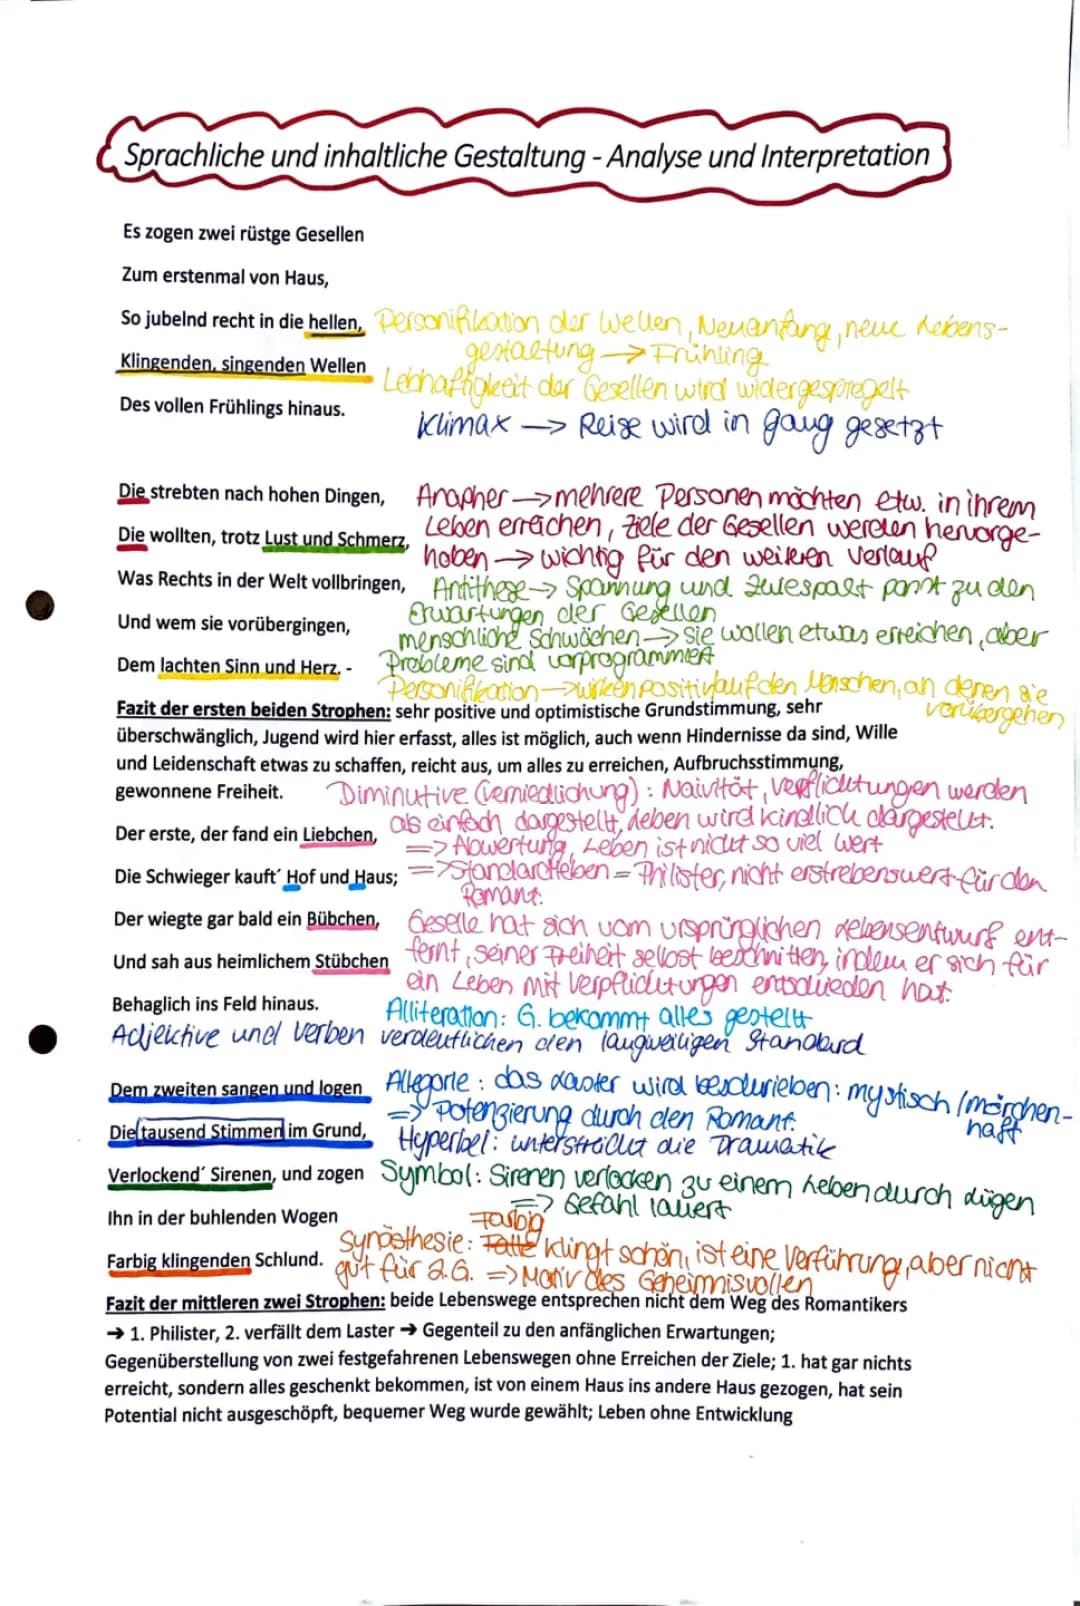 Sprachliche und inhaltliche Gestaltung - Analyse und Interpretation
Es zogen zwei rüstge Gesellen
Zum erstenmal von Haus,
So jubelnd recht in die hellen, Personifikation der Wellen, Neuanfang, neue Lebens-
gestaltung → Frühling
Klingenden, singenden Wellen
Lebhaftigkeit der Gesellen wird widergespregelt
Des vollen Frühlings hinaus.
Klimax → Reise wird in gang gesetzt
Die strebten nach hohen Dingen, Anapher → mehrere Personen möchten etw. in ihrem
Die wollten, trotz Lust und Schmerz, Leben erreichen, Ziele der Gesellen werden hervorge-
hoben → wichtig für den weiteren Verlauf
Was Rechts in der Welt vollbringen, Antithese → Spannung und Zwiespalt passt zu den
Erwartungen der Gesellen
Und wem sie vorübergingen,
menschliche Schwächen → sie wollen etwas erreichen, aber
Dem lachten Sinn und Herz. - Probleme sind vorprogrammiert
Personifikation → wirken positiv auf den Menschen, an denen sie
vorübergehen
Fazit der ersten beiden Strophen: sehr positive und optimistische Grundstimmung, sehr
überschwänglich, Jugend wird hier erfasst, alles ist möglich, auch wenn Hindernisse da sind, Wille
und Leidenschaft etwas zu schaffen, reicht aus, um alles zu erreichen, Aufbruchsstimmung,
gewonnene Freiheit. Diminutive (Verniedlichung) : Naivität, Verpflichtungen werden
als einfach dargestellt, Leben wird kindlich dargestellt.
Der erste, der fand ein Liebchen,
=> Abwertung, Leben ist nicht so viel wert
Die Schwieger kauft´ Hof und Haus; => Standardleben = Philister, nicht erstrebenswert für den
Romant.
Der wiegte gar bald ein Bübchen, Geselle hat sich vom ursprünglichen Lebensentwurf ent-
Und sah aus heimlichem Stübchen fernt, seiner Freiheit selbst beschnitten, indem er sich für
ein Leben mit Verpflichtungen entschieden hat.
Behaglich ins Feld hinaus. Alliteration: G. bekommt alles gestellt
Adjektive und Verben verdeutlichen den langweiligen Standard
Dem zweiten sangen und logen Allegorie : das Laster wird beschrieben: mystisch /märchen-
haft
=> Potenzierung durch den Romant.
Die tausend Stimmen im Grund, Hyperbel: unterstreicht die Dramatik
Verlockend´ Sirenen, und zogen Symbol: Sirenen verlocken zu einem Leben durch Lügen
=> Gefahl lauert
Ihn in der buhlenden Wogen
Farbig
Farbig klingenden Schlund. Synästhesie: klingt schön, ist eine Verführung, aber nicht
gut für 2.G. => Motiv des Geheimnisvollen
Fazit der mittleren zwei Strophen: beide Lebenswege entsprechen nicht dem Weg des Romantikers
→ 1. Philister, 2. verfällt dem Laster → Gegenteil zu den anfänglichen Erwartungen;
Gegenüberstellung von zwei festgefahrenen Lebenswegen ohne Erreichen der Ziele; 1. hat gar nichts
erreicht, sondern alles geschenkt bekommen, ist von einem Haus ins andere Haus gezogen, hat sein
Potential nicht ausgeschöpft, bequemer Weg wurde gewählt; Leben ohne Entwicklung